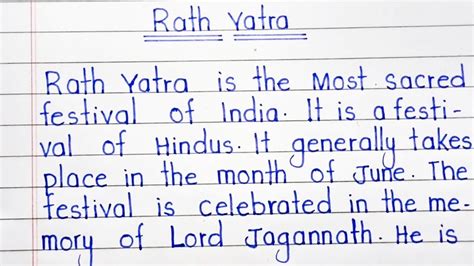 Rath Yatra
Rath Yatra is the Most sacred
festival of India. It is a festi-
val of Hindus. It generally takes
place in the month of June. The
festival is celebrated in the me-
mory of Lord Jagannath. He is